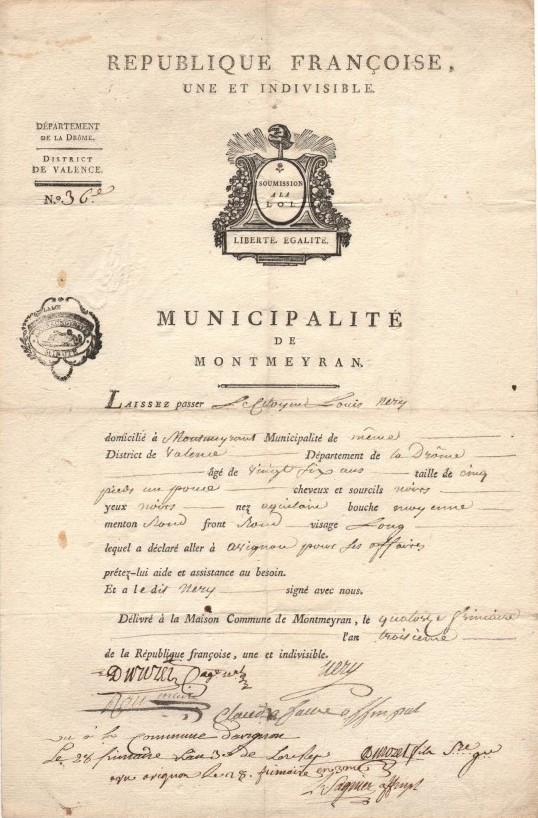 REPUBLIQUE FRANÇOISE,
UNE ET INDIVISIBLE.
DÉPARTEMENT
DE LA DRÔME.
DISTRICT
DE VALENCE.
N.o 36.e
SOUMISSION
A LA
LOI.
LIBERTE. EGALITE.
MUNICIPALITÉ
DE
MONTMEYRAN.
LAISSEZ passer Le Citoyen Louis Nery
domicilié à Montmeyrant Municipalité de même
District de Valence Département de la Drôme
âgé de vingt six ans taille de cinq
pieds un pouce cheveux et sourcils noirs
yeux noirs nez aquilain bouche moyenne
menton Rond front Rond visage Long
lequel a déclaré aller à avignon pour ses affaires
prêtez-lui aide et assistance au besoin.
Et a ledit Nery signé avec nous.
Délivré à la Maison Commune de Montmeyran, le quatorze frimaire
l'an troisieme
de la République françoise, une et indivisible.
nery
vu à la commune d'avignon
Le 28 frimaire l'an 3e de La Rep
vu avignon le 28. frimaire